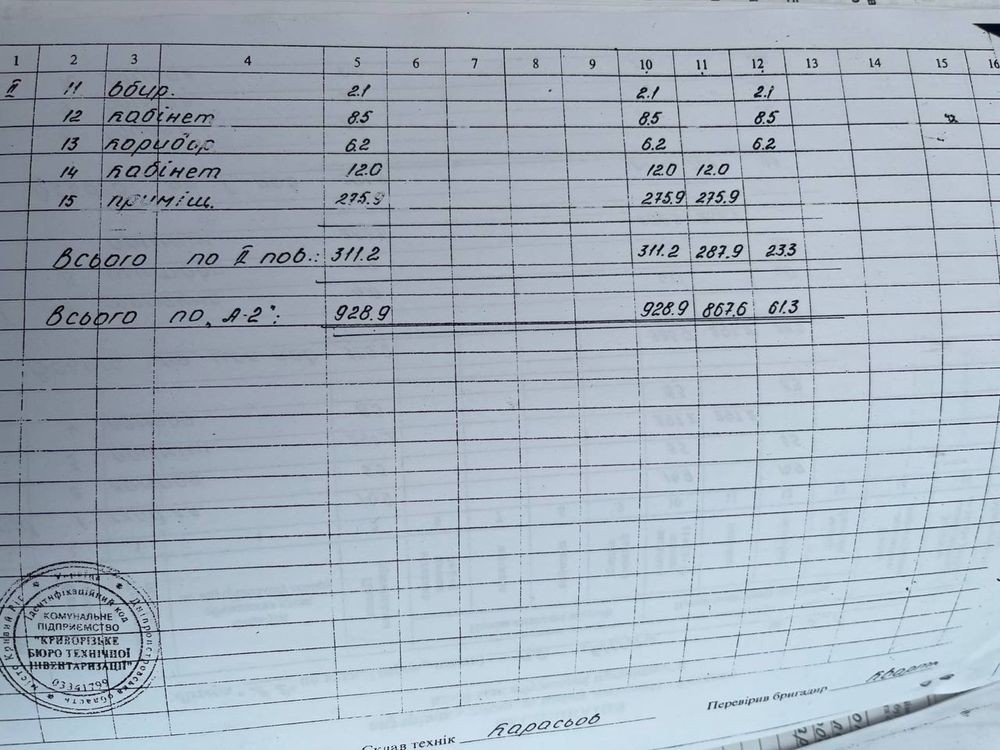 1 2 3 4 5 6 7 8 9 10 11 12 13 14 15 16
II 11 вбир. 2.1 2.1 2.1
12 кабінет 8.5 8.5 8.5
13 коридор 6.2 6.2 6.2
14 кабінет 12.0 12.0 12.0
15 приміщ. 275.9 275.9 275.9
Всього по II пов.: 311.2 311.2 287.9 23.3
Всього по „А-2": 928.9 928.9 867.6 61.3
Україна * Дніпропетровська область * місто Кривий Ріг *
Ідентифікаційний код
КОМУНАЛЬНЕ
ПІДПРИЄМСТВО
"КРИВОРІЗЬКЕ
БЮРО ТЕХНІЧНОЇ
ІНВЕНТАРИЗАЦІЇ"
03341799
Склав технік Карасьов
Перевірив бригадир